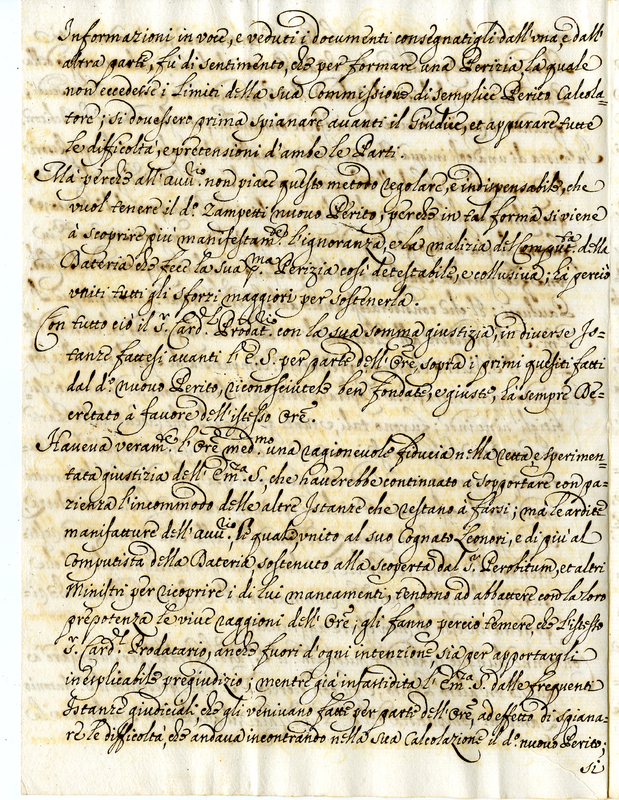 Informazioni in voce, e veduti i documenti consegnatigli dall'una, e dall'
altra parte, fù di sentimento, che per formare una Perizia, la quale
non eccedesse i Limiti della sua Commissione di semplice Perito Calcola=
tore; si dovessero prima spianare avanti il Giudice, et appurare tutte
le difficoltà, e pretensioni d'ambe le Parti.
Mà perche all' Avv.rio non piace questo metodo regolare, e indispensabile, che
vuol tenere il d.o Zampetti nuovo Perito; perche in tal forma si viene
à scoprire più manifestam.te l'ignoranza, e la malizia del Comput.ta della
Dateria che fece la sua p.ma Perizia così detestabile, e collusiva; hà perciò
uniti tutti gli sforzi maggiori per sostenerla.
Con tutto ciò il S.r Card.l Prodat.rio con la sua somma giustizia, in diverse Is=
tanze fattesi avanti l'E. S. per parte dell'Ore, sopra i primi quesiti fatti
dal d.o nuovo Perito, riconosciutele ben fondate, e giuste, hà sempre De=
cretato à favore dell'istesso Ore.
Haveva veram.te l'Ore med.mo una ragionevole fiducia nella retta, e sperimen=
tata giustizia dell'Em.za S., che haverebbe continuato a sopportare con pa=
zienza l'incommodo delle altre Istanze che restano à farsi; ma le ardite
manifatture dell'Avv.rio, il quale unito al suo Cognato Leonori, e di più al
Computista della Dateria sostenuto alla scoperta dal S.r Perobitum, et altri
Ministri per ricoprire i di lui mancamenti, tendono ad abbattere con la loro
prepotenza le vive raggioni dell'Ore; gli fanno perciò temere, che l'istesso
S.r Card.l Prodatario, anche fuori d'ogni intenzione, sia per apportargli
inesplicabile pregiudizio; mentre già infastidita l'Em.za S. dalle frequenti
Istanze giudiciali che gli venivano fatte per parte dell'Ore, ad effetto di spiana=
re le difficoltà, che andava incontrando nella sua Calcolazione il d.o nuovo Perito;
si